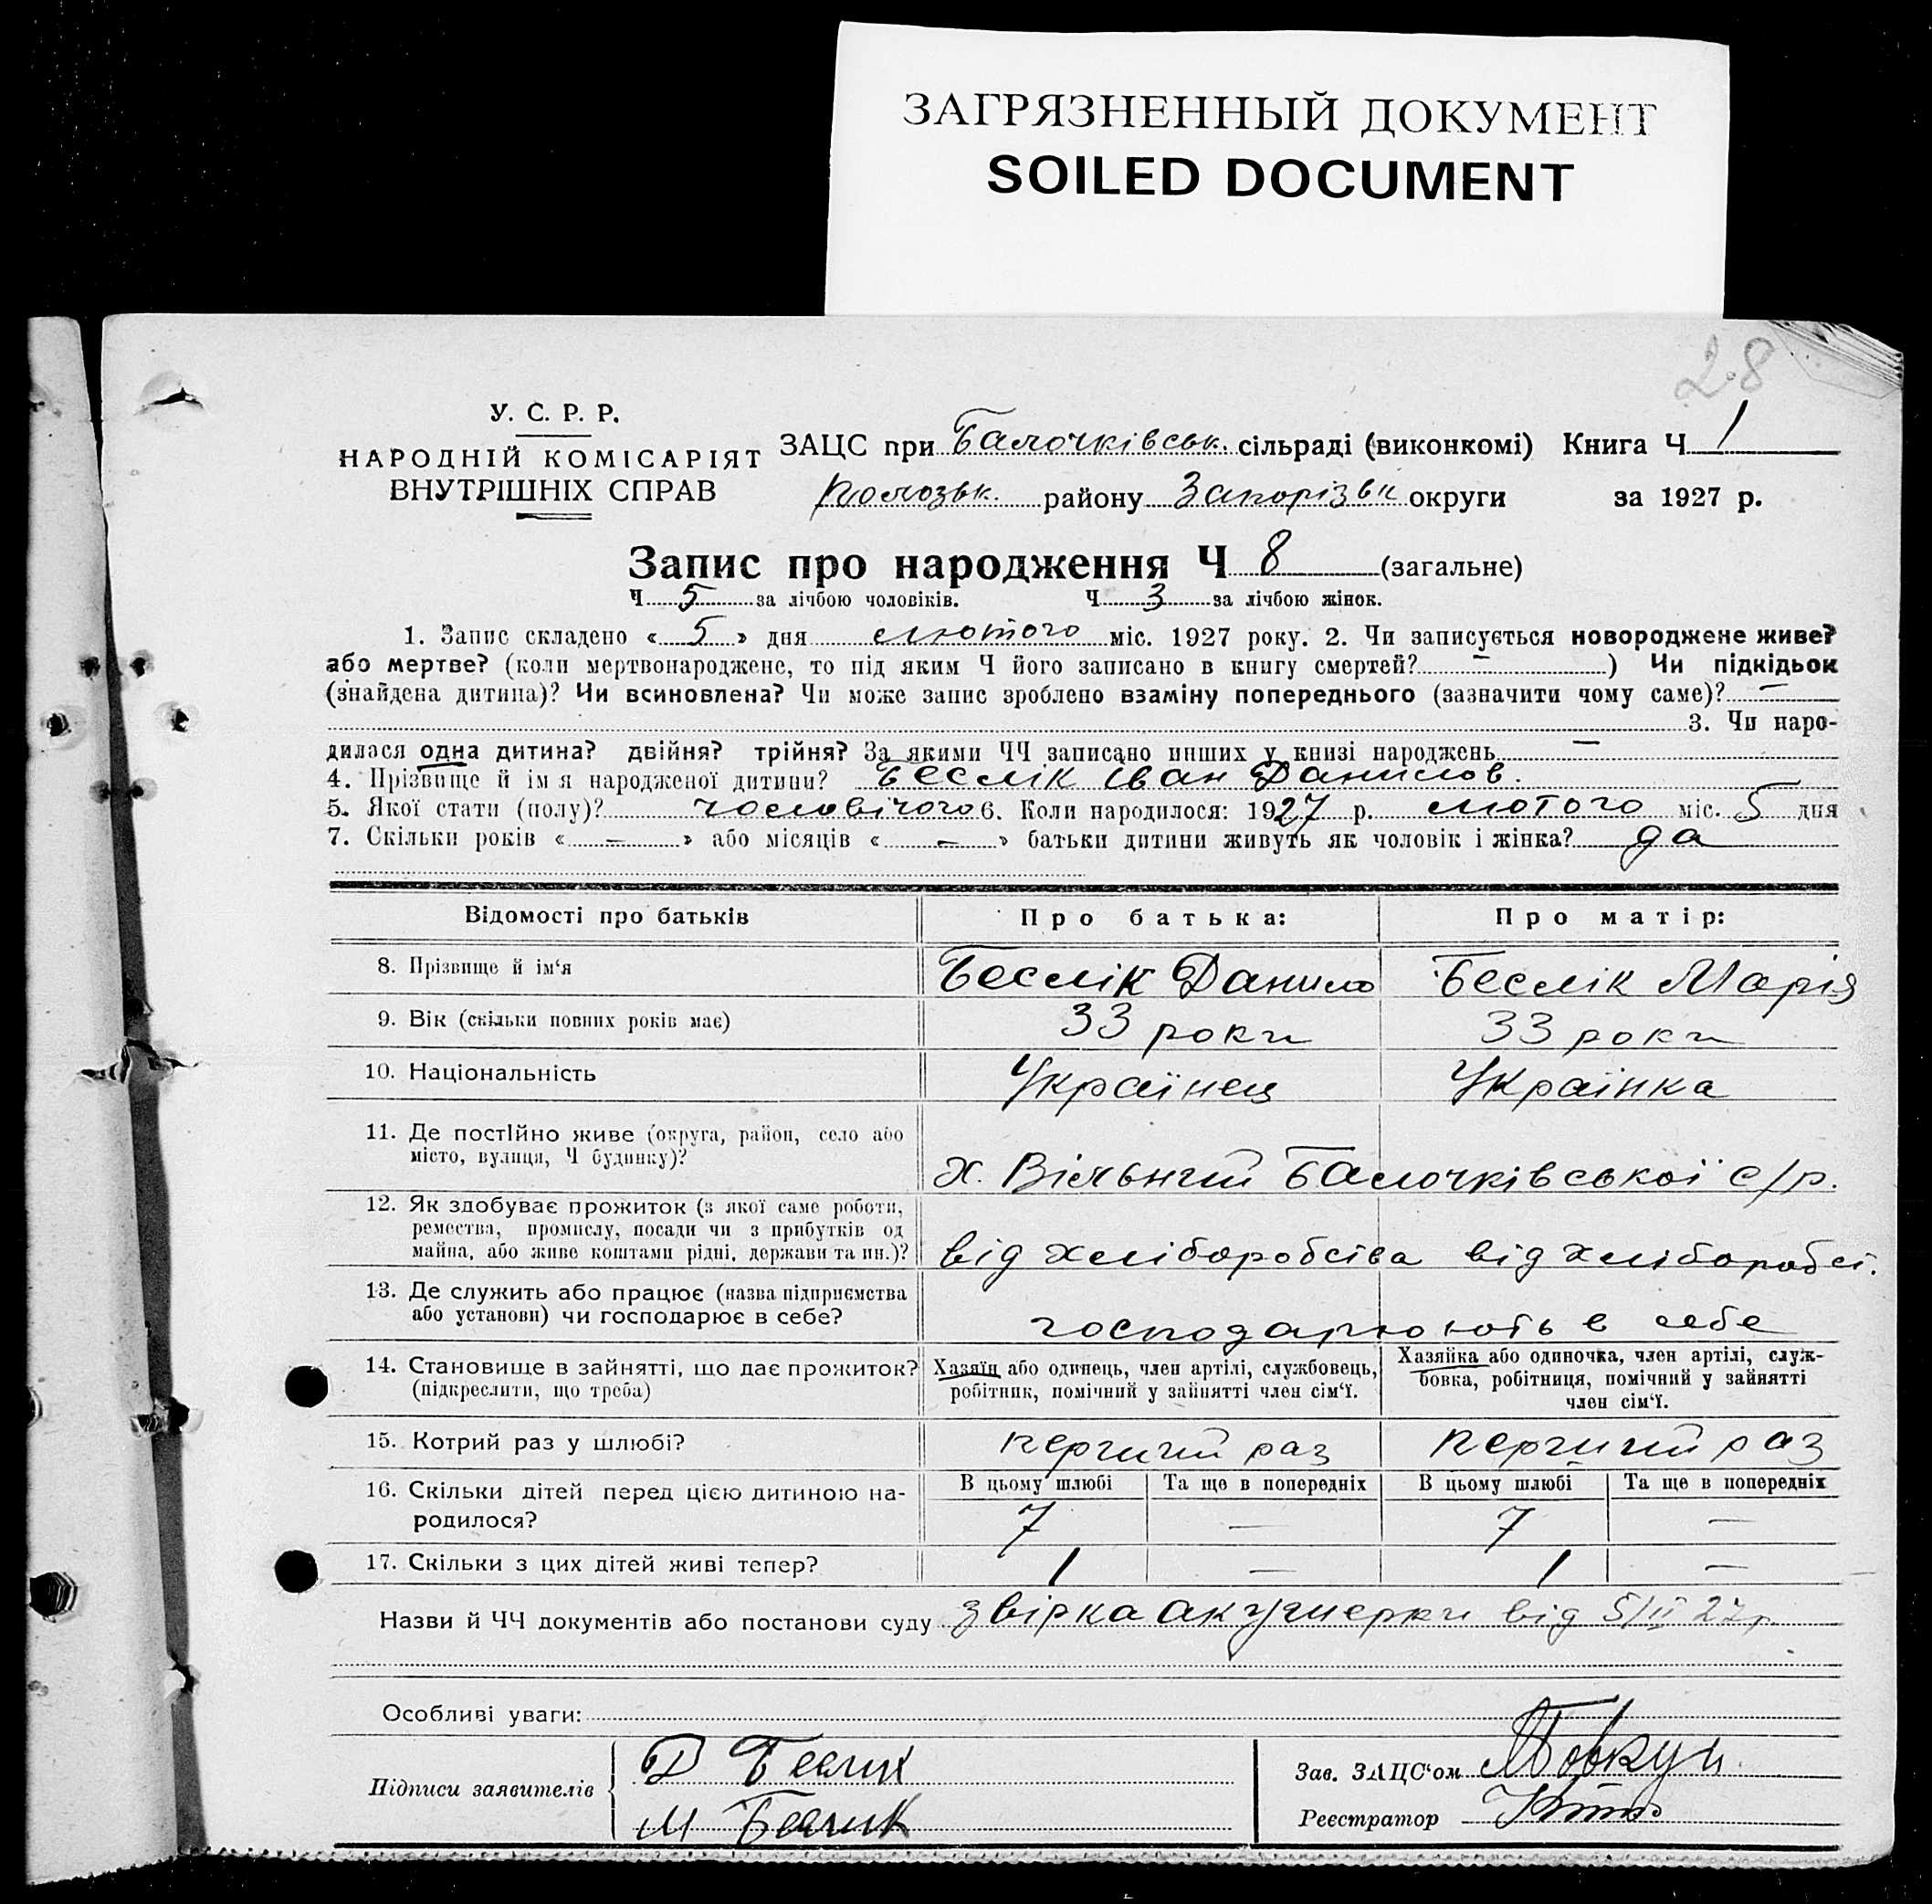 ЗАГРЯЗНЕННЫЙ ДОКУМЕНТ
SOILED DOCUMENT
28
У. С. Р. Р.
НАРОДНІЙ КОМІСАРІЯТ
ВНУТРІШНІХ СПРАВ
ЗАЦС при Балочківськ. сільраді (виконкомі) Книга Ч 1
Пологзьк. району Запорізьк округи за 1927 р.
Запис про народження Ч 8 (загальне)
Ч 5 за лічбою чоловіків. Ч 3 за лічбою жінок.
1. Запис складено « 5 » дня лютого міс. 1927 року. 2. Чи записується новороджене живе?
або мертве? (коли мертвонароджене, то під яким Ч його записано в книгу смертей? — ) Чи підкідьок
(знайдена дитина)? Чи всиновлена? Чи може запис зроблено взаміну попереднього (зазначити чому саме)? —
3. Чи наро-
дилася одна дитина? двійня? трійня? За якими ЧЧ записано инших у книзі народжень —
4. Прізвище й ім я народженої дитини? Беслік Іван Данилов.
5. Якої стати (полу)? чоловічого 6. Коли народилося: 1927 р. лютого міс. 5 дня
7. Скільки років « — » або місяців « — » батьки дитини живуть як чоловік і жінка? да
Відомості про батьків Про батька: Про матір:
8. Прізвище й ім‘я Беслік Данило Беслік Марія
9. Вік (скільки повних років має) 33 роки 33 роки
10. Національність Українец Українка
11. Де постійно живе (округа, район, село або
місто, вулиця, Ч будинку)? х. Вільний Балочківської с/р.
12. Як здобуває прожиток (з якої саме роботи,
ремества, промислу, посади чи з прибутків од
майна, або живе коштами рідні, держави та ин.)? від хліборобства від хліборобст.
13. Де служить або працює (назва підприємства
або установи) чи господарює в себе? господарюють в себе
14. Становище в зайнятті, що дає прожиток?
(підкреслити, що треба)
Хазяїн або одинець, член артілі, службовець,
робітник, помічний у зайнятті член сім‘ї.
Хазяйка або одиночка, член артілі, служ-
бовка, робітниця, помічний у зайнятті
член сім‘ї.
15. Котрий раз у шлюбі? перший раз перший раз
В цьому шлюбі Та ще в попередніх В цьому шлюбі Та ще в попередніх
16. Скільки дітей перед цією дитиною на-
родилося? 7 — 7 —
17. Скільки з цих дітей живі тепер? 1 — 1 —
Назви й ЧЧ документів або постанови суду звірка акушерки від 5/II 27р.
Особливі уваги:
Підписи заявителів
Д Беслик
М Беслик
Зав. ЗАЦС‘ом Товкун
Реєстратор